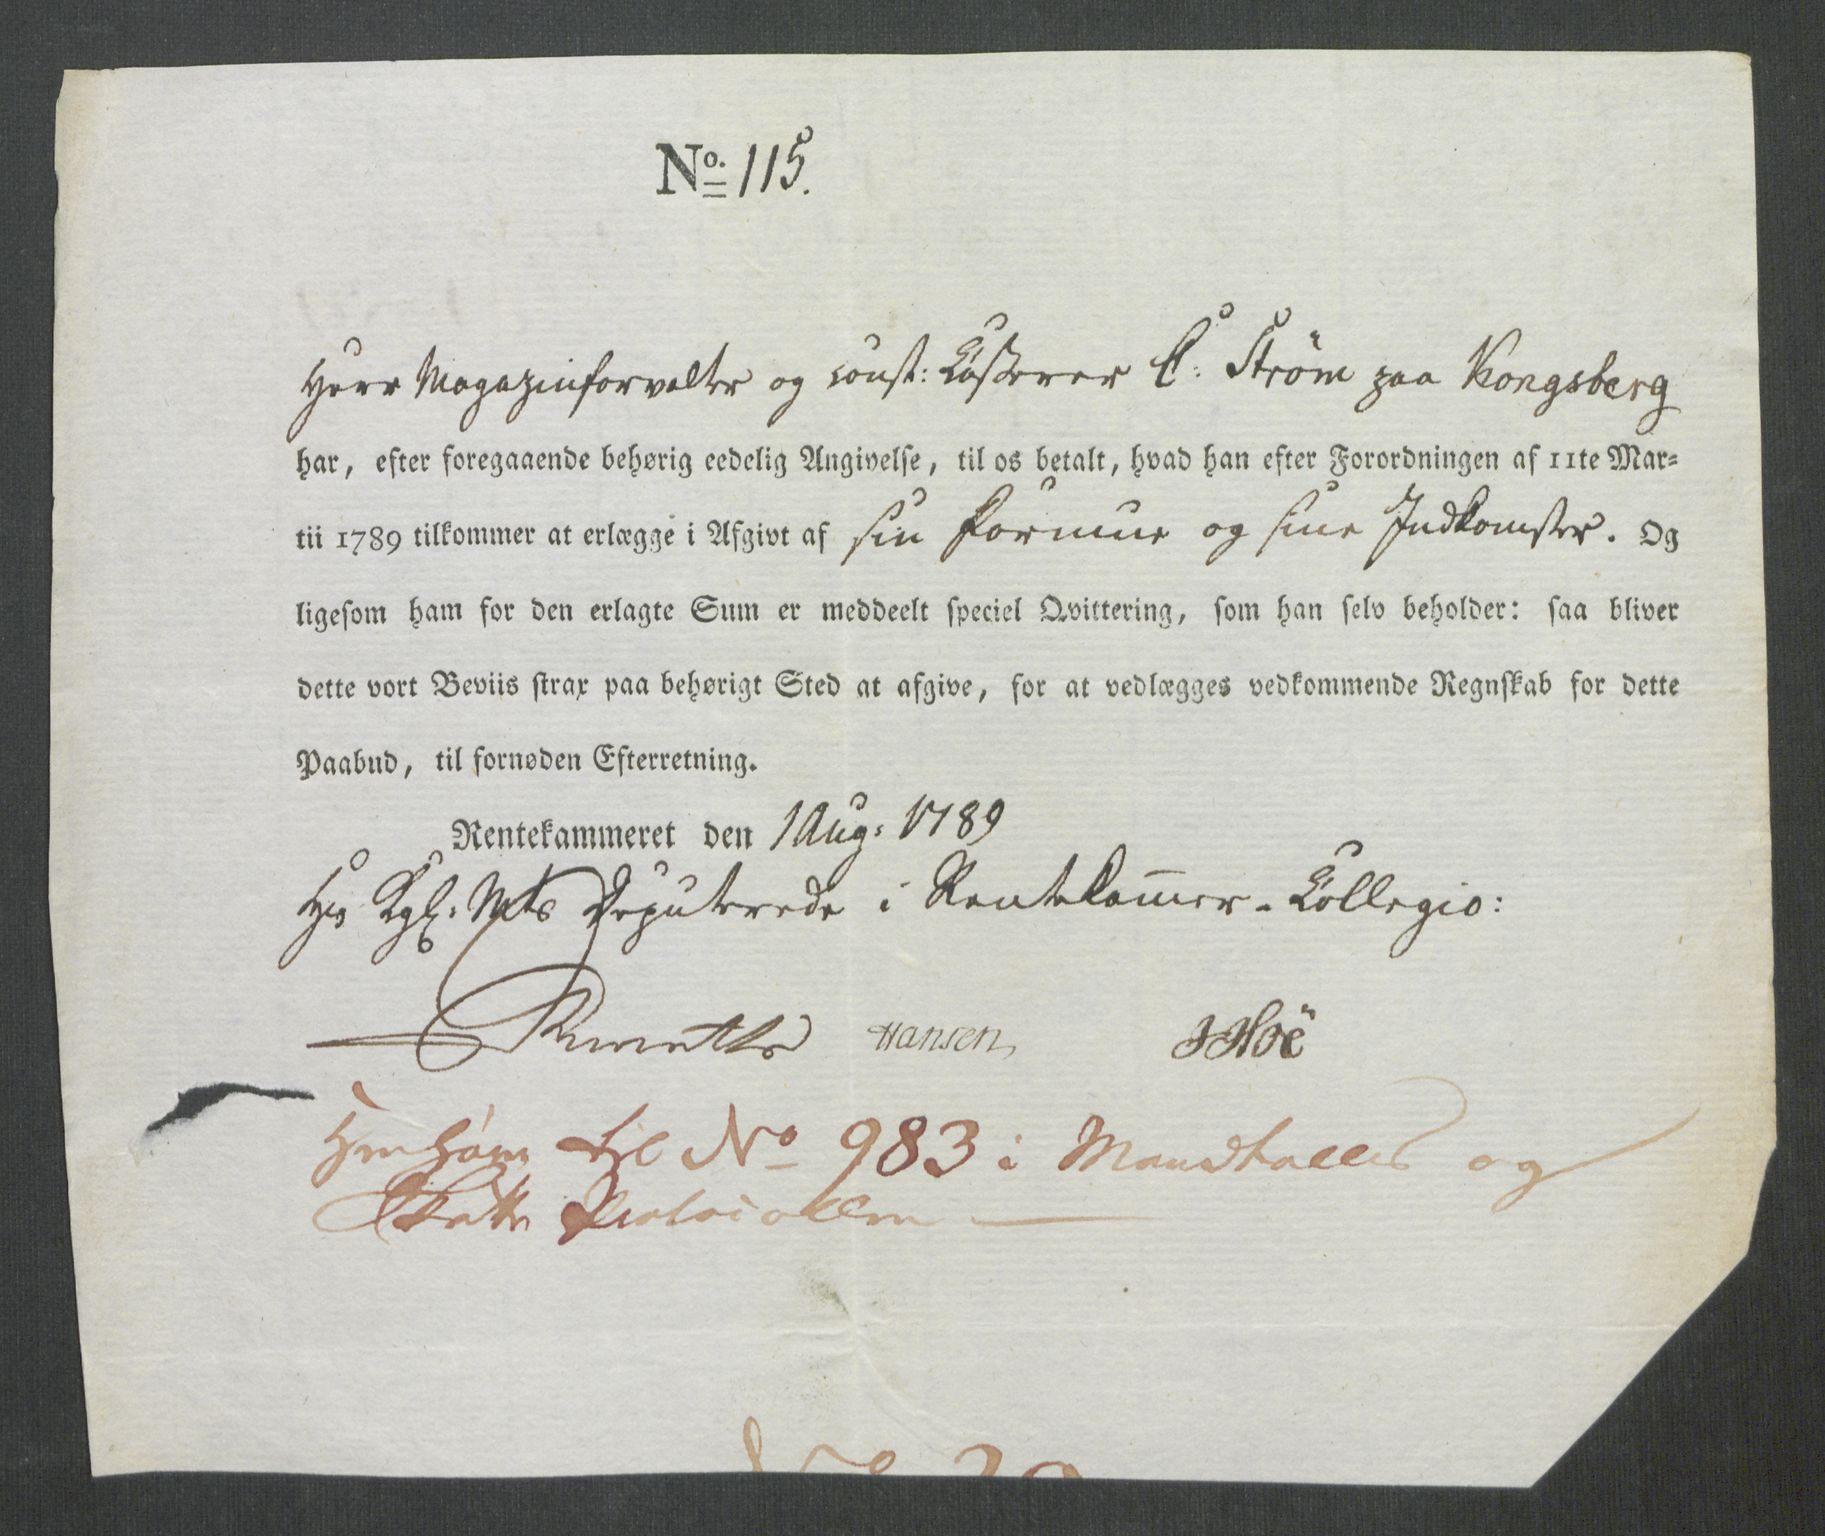 No. 115.
Herr Magazinforvalter og const: Casserer C: Ström paa Kongsberg
har, efter foregaaende behørig eedelig Angivelse, til os betalt, hvad han efter Forordningen af 11te Mar-
tii 1789 tilkommer at erlægge i Afgivt af sin Formue og sine Indkomster. Og
ligesom ham for den erlagte Sum er meddeelt speciel Qvittering, som han selv beholder: saa bliver
dette vort Beviis strax paa behørigt Sted at afgive, for at vedlægges vedkommende Regnskab for dette
Paabud, til fornøden Efterretning.
Rentekammeret den 1 Aug: 1789
Hs Kgl. Mts Deputerede i Rentekammer-Collegio:
Hansen JHoë
Henhører til No 983 i Mandtallet og
Skatte Protocollen
No